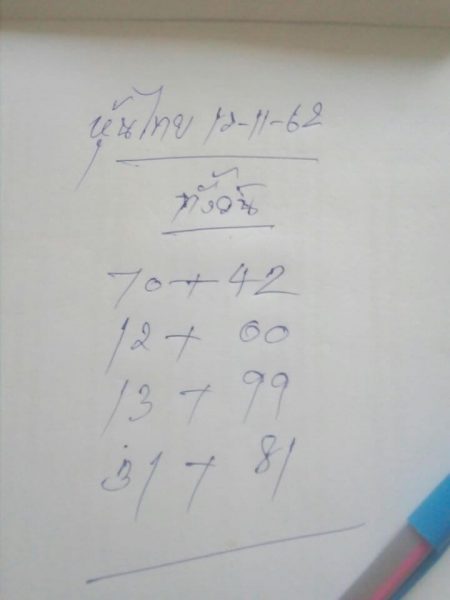 หุ้นไทย 12-11-62
ทั้งวัน
70+42
12+00
13+99
31+81